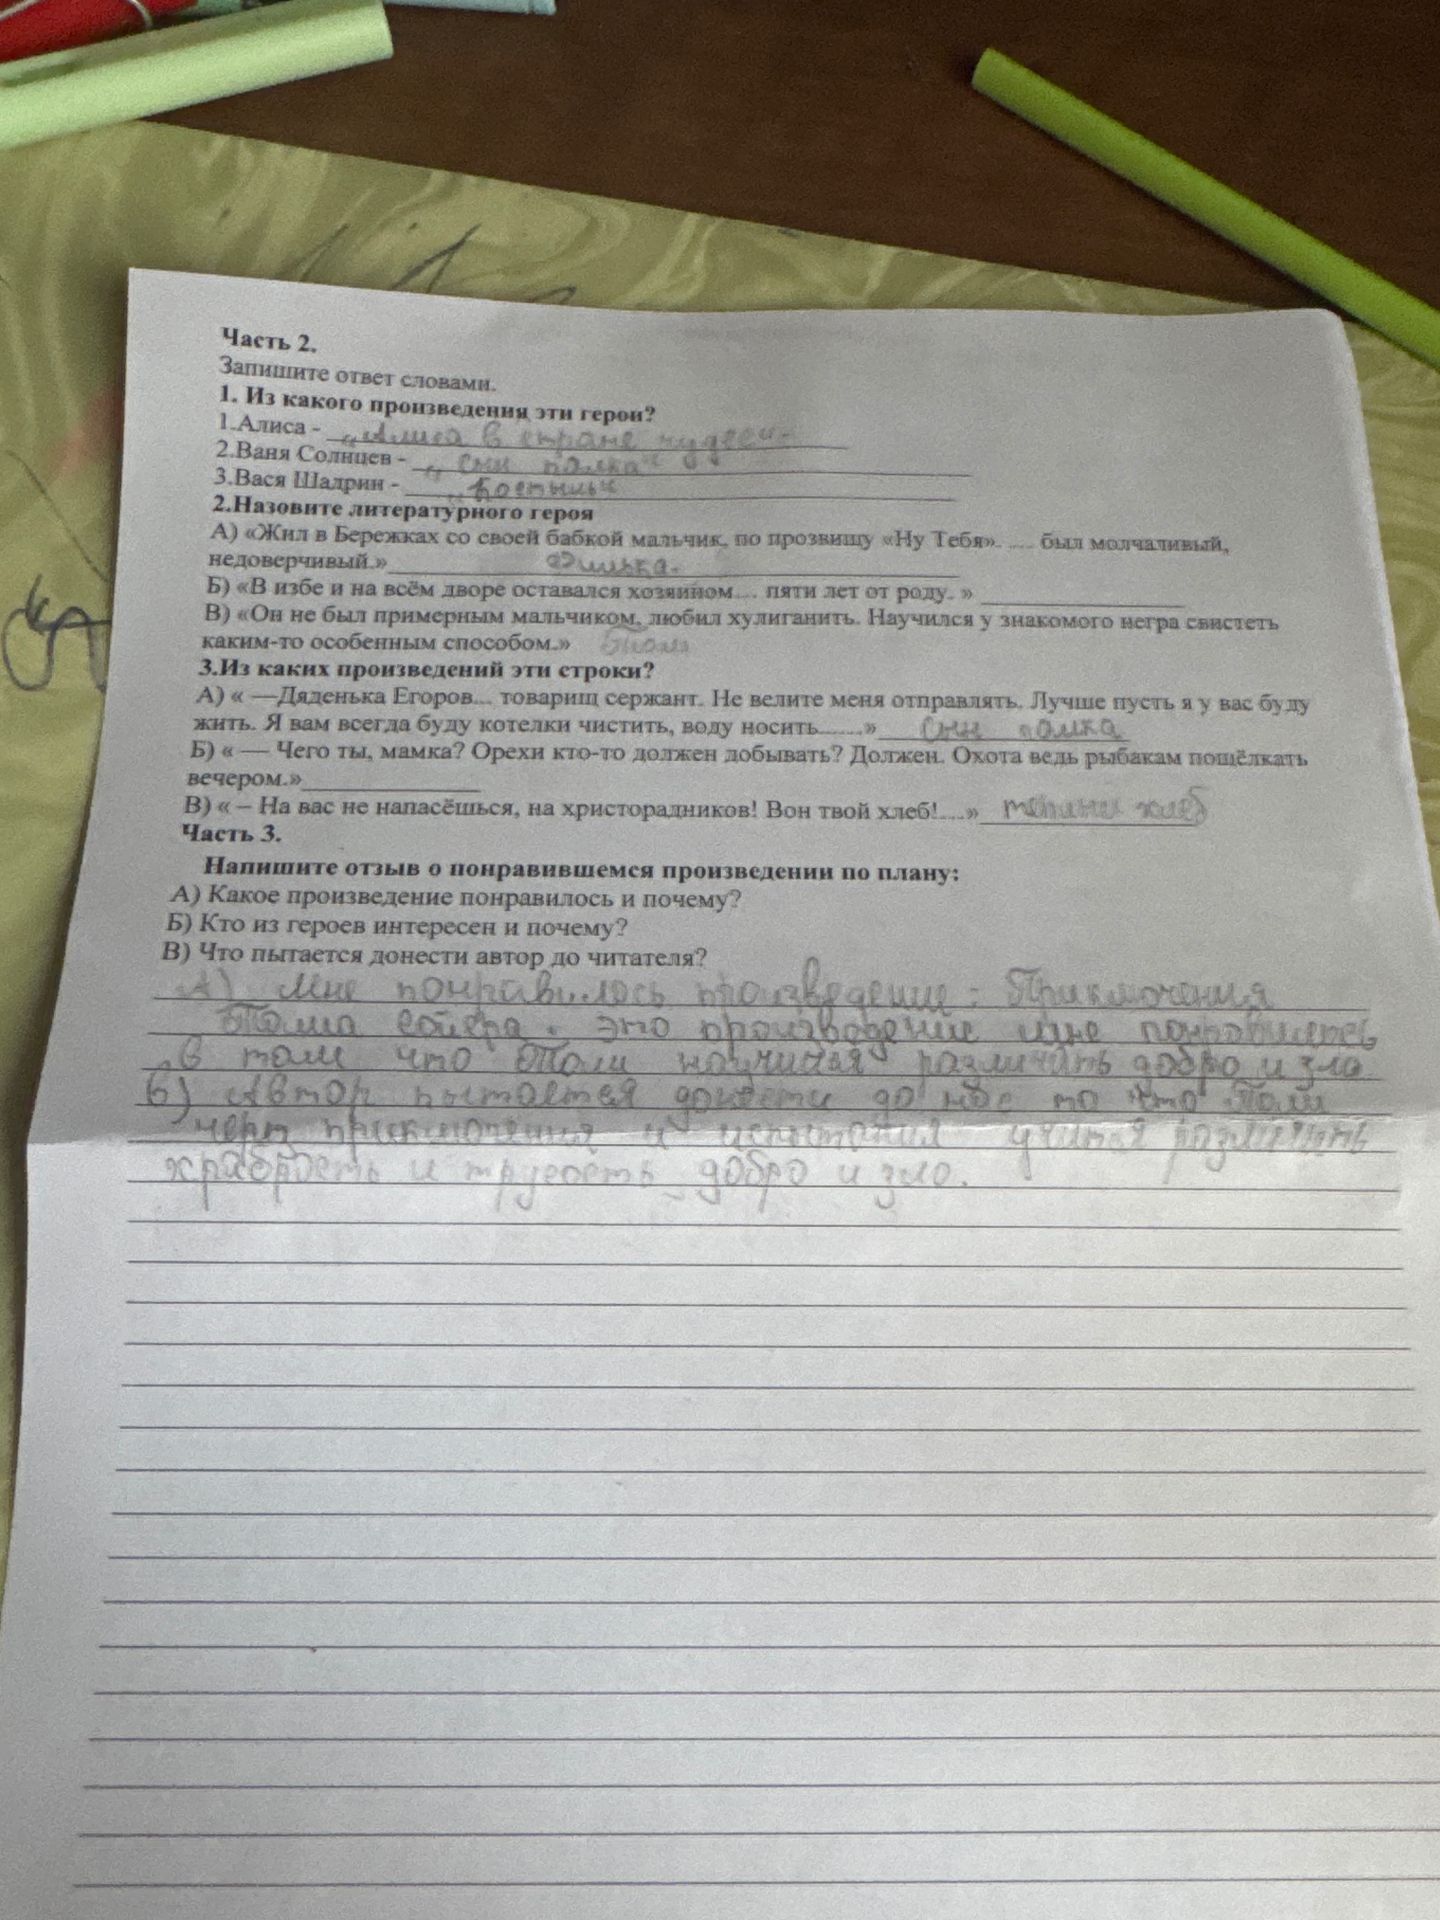 Часть 2.
Запишите ответ словами.
1. Из какого произведения эти герои?
1.Алиса - „Алиса в стране чудес"
2.Ваня Солнцев - „ сын полка"
3.Вася Шадрин - „
2.Назовите литературного героя
А) «Жил в Бережках со своей бабкой мальчик, по прозвищу «Ну Тебя». .... был молчаливый,
недоверчивый.» Филька.
Б) «В избе и на всём дворе оставался хозяином.... пяти лет от роду. »
В) «Он не был примерным мальчиком, любил хулиганить. Научился у знакомого негра свистеть
каким-то особенным способом.» Том
3.Из каких произведений эти строки?
А) « —Дяденька Егоров... товарищ сержант. Не велите меня отправлять. Лучше пусть я у вас буду
жить. Я вам всегда буду котелки чистить, воду носить.......» сын полка
Б) « — Чего ты, мамка? Орехи кто-то должен добывать? Должен. Охота ведь рыбакам пощёлкать
вечером.»
В) « – На вас не напасёшься, на христорадников! Вон твой хлеб!....» тёплый хлеб
Часть 3.
Напишите отзыв о понравившемся произведении по плану:
А) Какое произведение понравилось и почему?
Б) Кто из героев интересен и почему?
В) Что пытается донести автор до читателя?
А) Мне понравилось произведение: Приключения
Тома Сойера. это произведение мне понравилось
в том что Том научился различить добро и зло
Б) Автор пытается донести до нас то что Том
через приключения и испытания учится различить
храбрость и трусость, добро и зло.